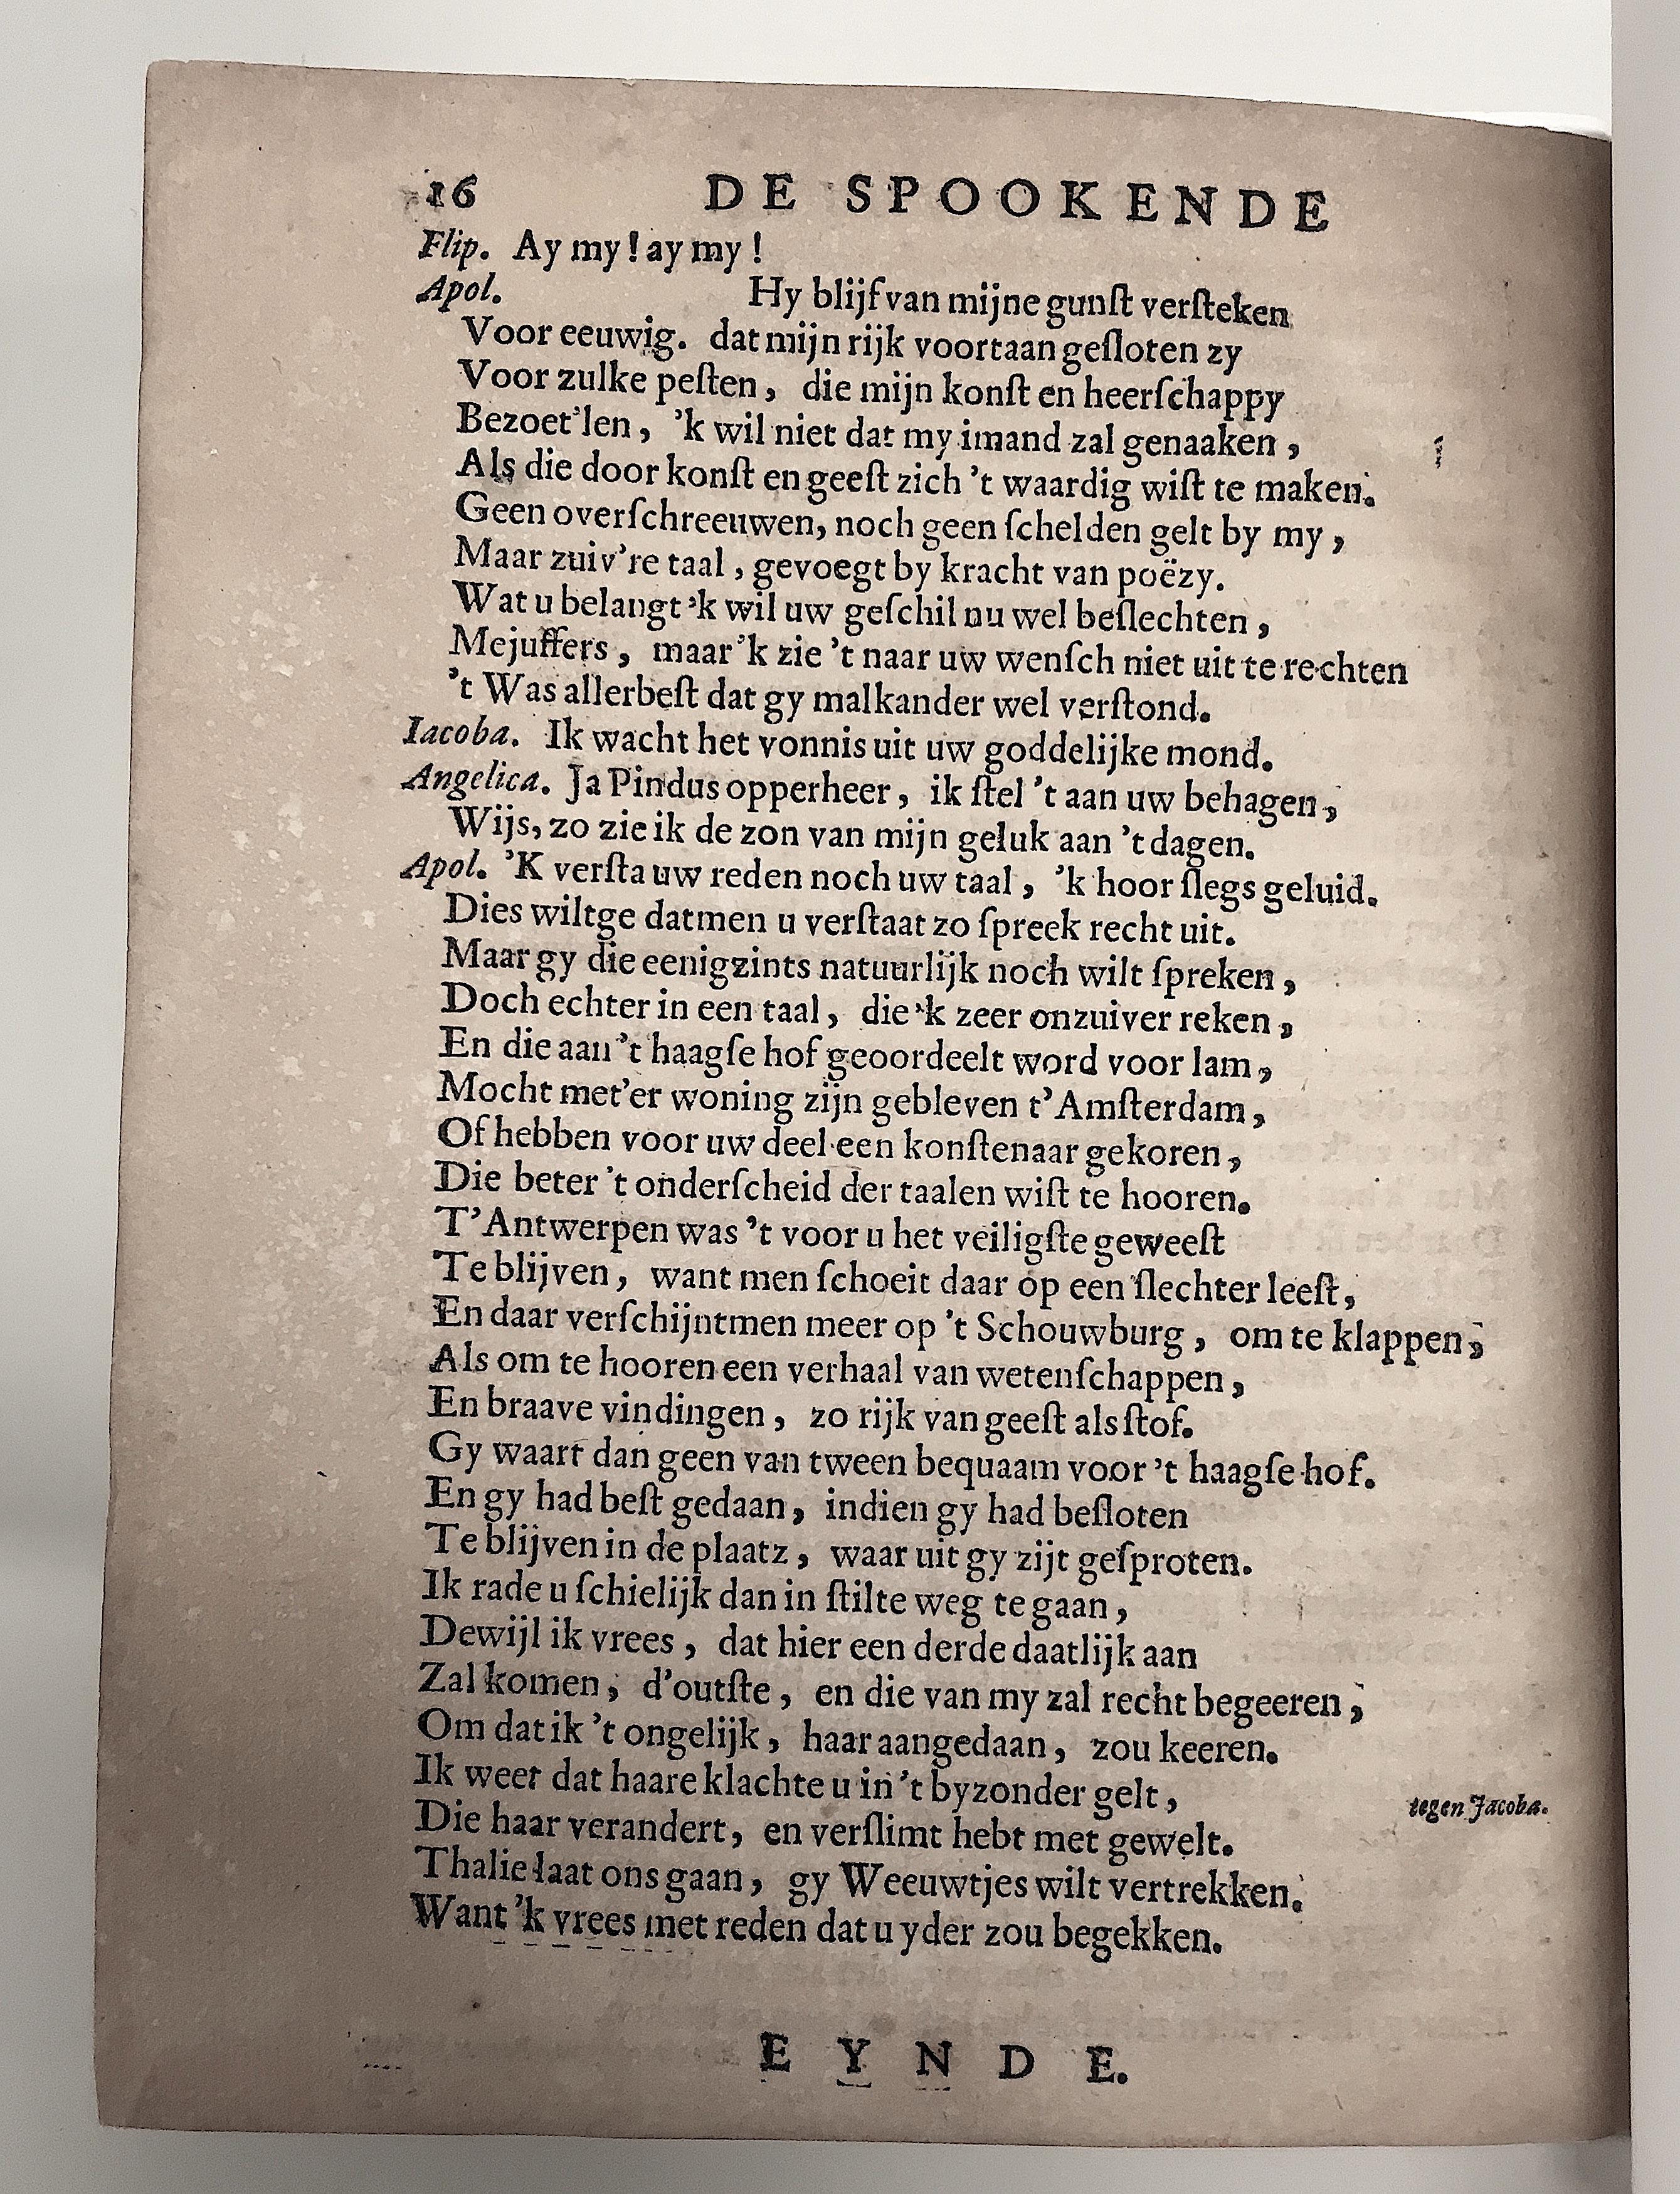 16 DE SPOOKENDE
Flip. Ay my! ay my!
Apol. Hy blijf van mijne gunſt verſteken
Voor eeuwig. dat mijn rijk voortaan geſloten zy
Voor zulke peſten, die mijn konſt en heerſchappy
Bezoet'len, 'k wil niet dat my imand zal genaaken,
Als die door konſt en geeſt zich 't waardig wiſt te maken.
Geen overſchreeuwen, noch geen ſchelden gelt by my,
Maar zuiv're taal, gevoegt by kracht van poëzy.
Wat u belangt 'k wil uw geſchil nu wel beſlechten,
Mejuffers, maar 'k zie 't naar uw wenſch niet uit te rechten
't Was allerbeſt dat gy malkander wel verſtond.
Iacoba. Ik wacht het vonnis uit uw goddelijke mond.
Angelica. Ja Pindus opperheer, ik ſtel 't aan uw behagen,
Wijs, zo zie ik de zon van mijn geluk aan 't dagen.
Apol. 'K verſta uw reden noch uw taal, 'k hoor ſlegs geluid.
Dies wiltge datmen u verſtaat zo ſpreek recht uit.
Maar gy die eenigzints natuurlijk noch wilt ſpreken,
Doch echter in een taal, die 'k zeer onzuiver reken,
En die aan 't haagſe hof geoordeelt word voor lam,
Mocht met'er woning zijn gebleven t'Amſterdam,
Of hebben voor uw deel een konſtenaar gekoren,
Die beter 't onderſcheid der taalen wiſt te hooren.
T'Antwerpen was 't voor u het veiligſte geweeſt
Te blijven, want men ſchoeit daar op een ſlechter leeſt,
En daar verſchijntmen meer op 't Schouwburg, om te klappen,
Als om te hooren een verhaal van wetenſchappen,
En braave vindingen, zo rijk van geeſt als ſtof.
Gy waart dan geen van tween bequaam voor 't haagſe hof.
En gy had beſt gedaan, indien gy had beſloten
Te blijven in de plaatz, waar uit gy zijt geſproten.
Ik rade u ſchielijk dan in ſtilte weg te gaan,
Dewijl ik vrees, dat hier een derde daatlijk aan
Zal komen, d'outſte, en die van my zal recht begeeren,
Om dat ik 't ongelijk, haar aangedaan, zou keeren.
Ik weet dat haare klachte u in 't byzonder gelt, tegen Jacoba.
Die haar verandert, en verſlimt hebt met gewelt.
Thalie laat ons gaan, gy Weeuwtjes wilt vertrekken.
Want 'k vrees met reden dat u yder zou begekken.
EYNDE.